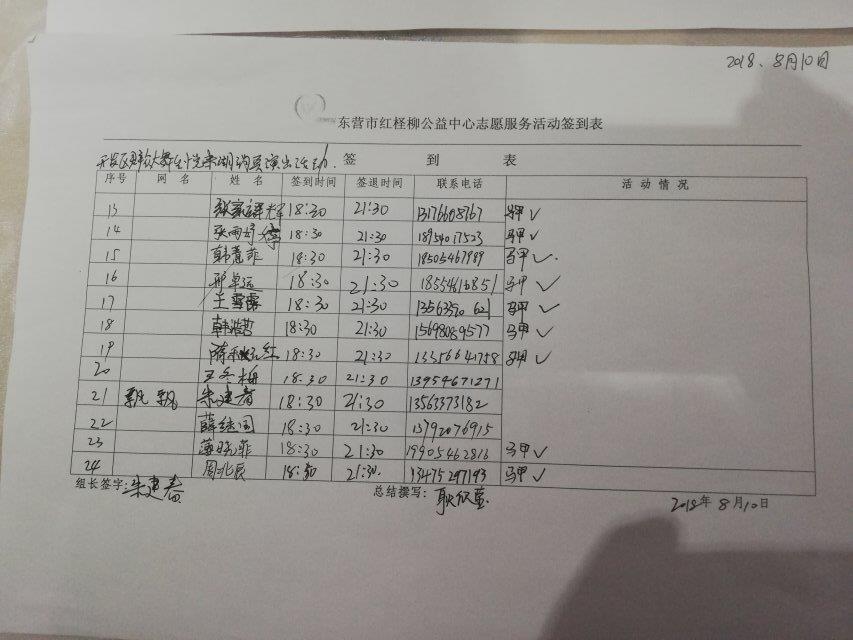 2018、8月10日
东营市红柽柳公益中心志愿服务活动签到表
签 到 表
序号 网 名 姓 名 签到时间 签退时间 联系电话 活 动 情 况
13 18:30 21:30 13176608767 马甲 ✓
14 张雨婷 18:30 21:30 18954017523 马甲 ✓
15 韩菲 18:30 21:30 18505467989 马甲 ✓
16 邢卓远 18:30 21:30 马甲 ✓
17 王雪露 18:30 21:30 马甲 ✓
18 韩浩哲 18:30 21:30 15698089577 马甲 ✓
19 红 18:30 21:30 13356641758 马甲 ✓
20 王冬梅 18:30 21:30 13954671271
21 飘飘 朱建春 18:30 21:30 13563373182
22 薛继国 18:30 21:30 13792076915
23 薄晓菲 18:30 21:30 19905462816 马甲 ✓
24 周北辰 18:30 21:30 13475297193 马甲 ✓
组长签字: 朱建春 总结撰写: 耿
2018年8月10日